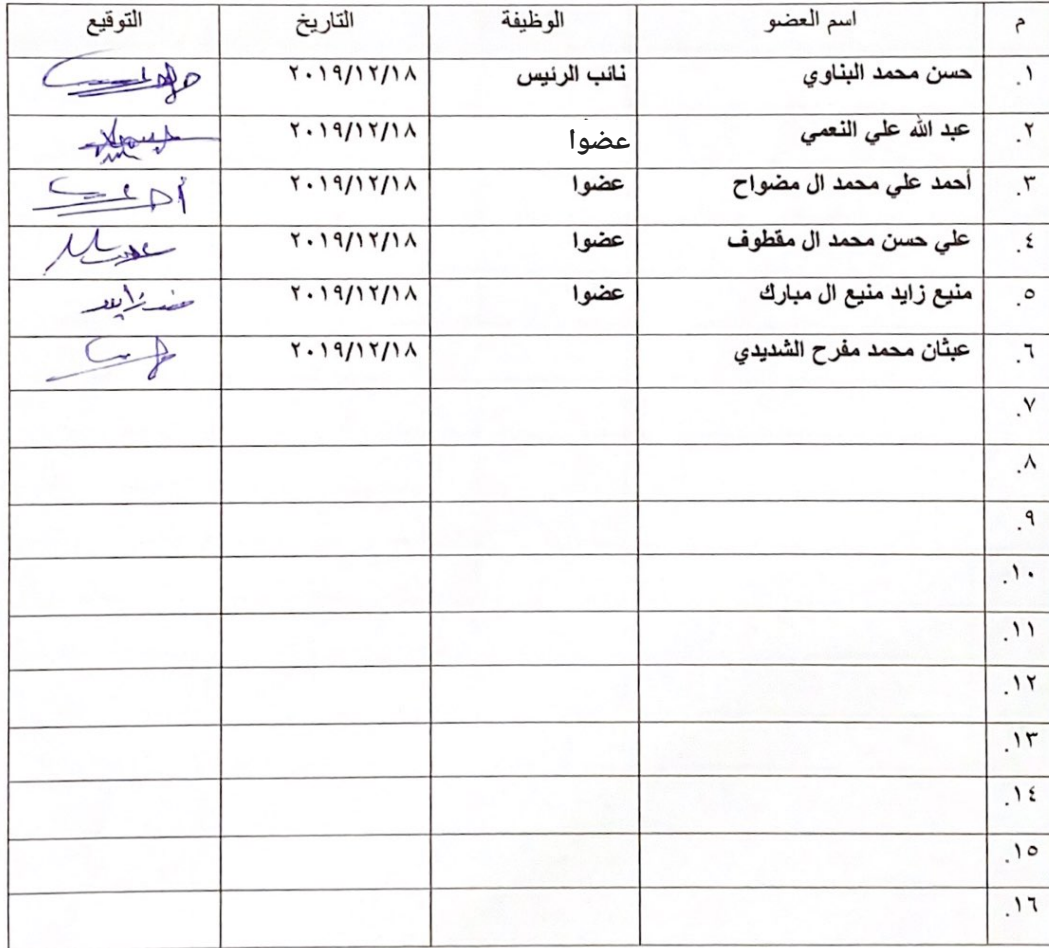 م اسم العضو الوظيفة التاريخ التوقيع
١. حسن محمد البناوي نائب الرئيس ٢٠١٩/١٢/١٨
٢. عبد الله علي النعمي عضوا ٢٠١٩/١٢/١٨
٣. أحمد علي محمد ال مضواح عضوا ٢٠١٩/١٢/١٨
٤. علي حسن محمد ال مقطوف عضوا ٢٠١٩/١٢/١٨
٥. منيع زايد منيع ال مبارك عضوا ٢٠١٩/١٢/١٨
٦. عبثان محمد مفرح الشديدي ٢٠١٩/١٢/١٨
٧.
٨.
٩.
١٠.
١١.
١٢.
١٣.
١٤.
١٥.
١٦.